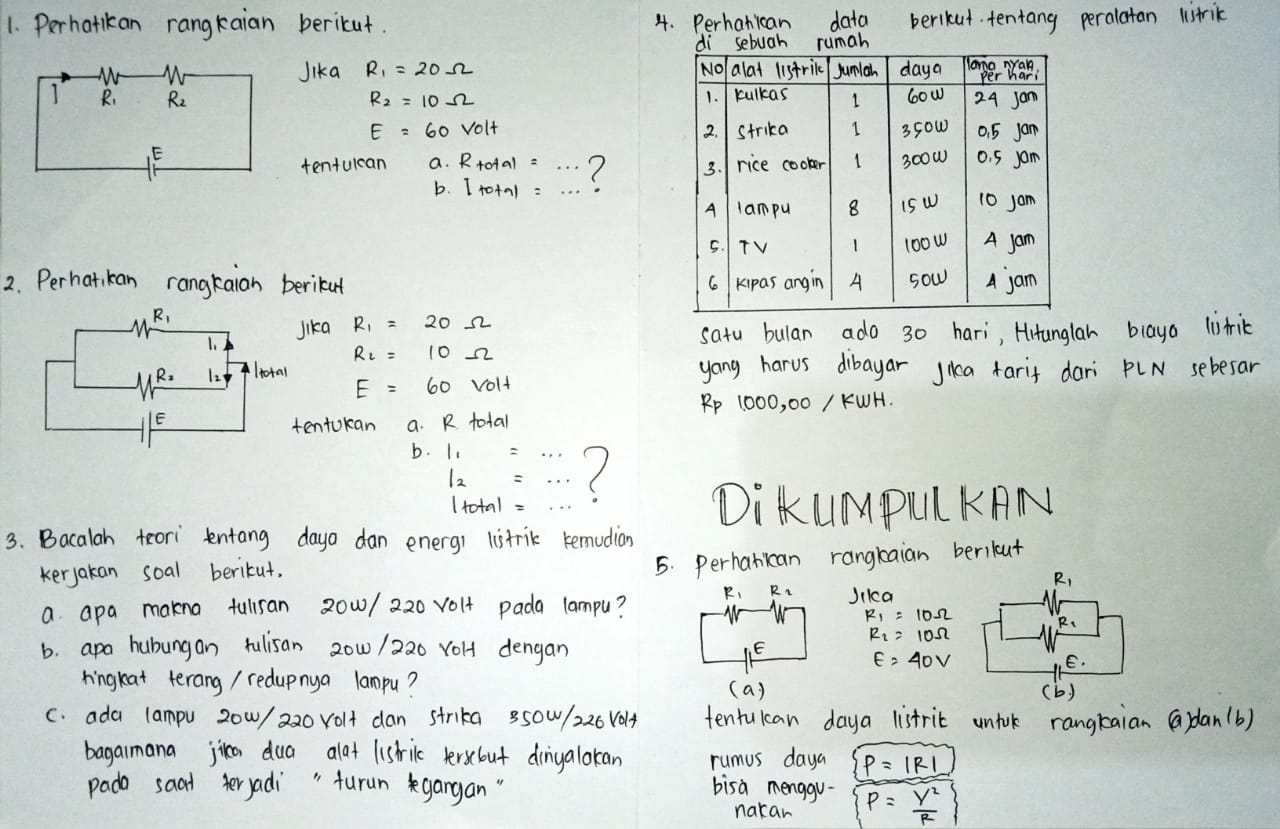 1. Perhatikan rangkaian berikut.
I
R₁
R₂
E
Jika R₁ = 20 Ω
R₂ = 10 Ω
E = 60 Volt
tentukan a. R total = ... ?
b. I total = ...
2. Perhatikan rangkaian berikut
R₁
I₁
R₂
I₂
Itotal
E
Jika R₁ = 20 Ω
R₂ = 10 Ω
E = 60 Volt
tentukan a. R total
b. I₁ = ...
I₂ = ... ?
Itotal = ...
3. Bacalah teori tentang daya dan energi listrik kemudian
kerjakan soal berikut.
a. apa makna tulisan 20W/ 220 Volt pada lampu?
b. apa hubungan tulisan 20W/220 Volt dengan
tingkat terang / redupnya lampu?
c. ada lampu 20W/220 Volt dan strika 350W/220 Volt
bagaimana jika dua alat listrik tersebut dinyalakan
pada saat terjadi "turun tegangan"
4. Perhatikan data berikut tentang peralatan listrik
di sebuah rumah
No alat listrik Jumlah daya lama nyala per hari
1. Kulkas 1 60W 24 jam
2. Strika 1 350W 0,5 Jam
3. rice cooker 1 300W 0,5 Jam
4 lampu 8 15 W 10 Jam
5. TV 1 100W 4 Jam
6 kipas angin 4 50W 4 jam
Satu bulan ada 30 hari, Hitunglah biaya listrik
yang harus dibayar jika tarif dari PLN sebesar
Rp 1000,00 / KWH.
DiKUMPULKAN
5. Perhatikan rangkaian berikut
R₁ R₂
E
(a)
Jika
R₁ = 10Ω
R₂ = 10Ω
E = 40V
R₁
R₂
E.
(b)
tentukan daya listrik untuk rangkaian (a) dan (b)
rumus daya P = IRI
bisa menggu-
nakan P = V²/R